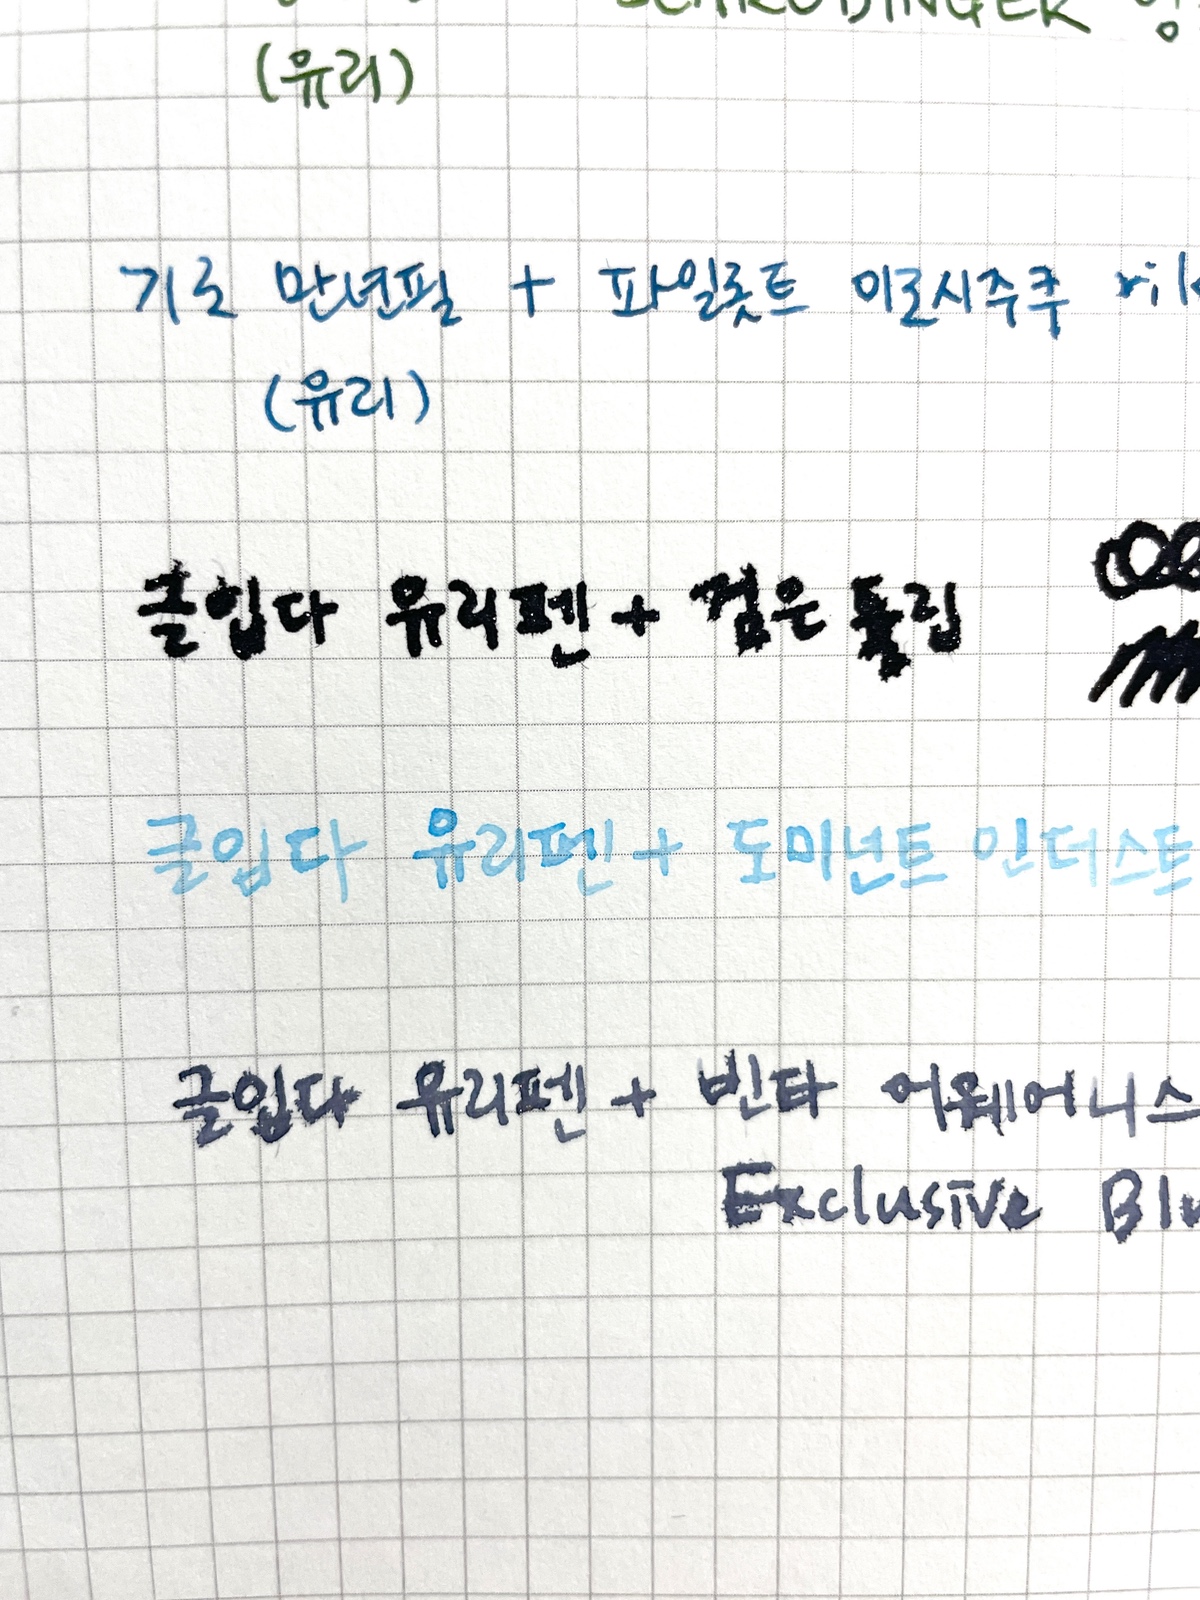 SCHRODINGER
(유리)
기로 만년필 + 파일롯트 이로시주쿠
(유리)
글입다 유리펜 + 검은 튤립
글입다 유리펜 + 도미넌트 인더스트
글입다 유리펜 + 빈타 어웨어니스
Exclusive Blu